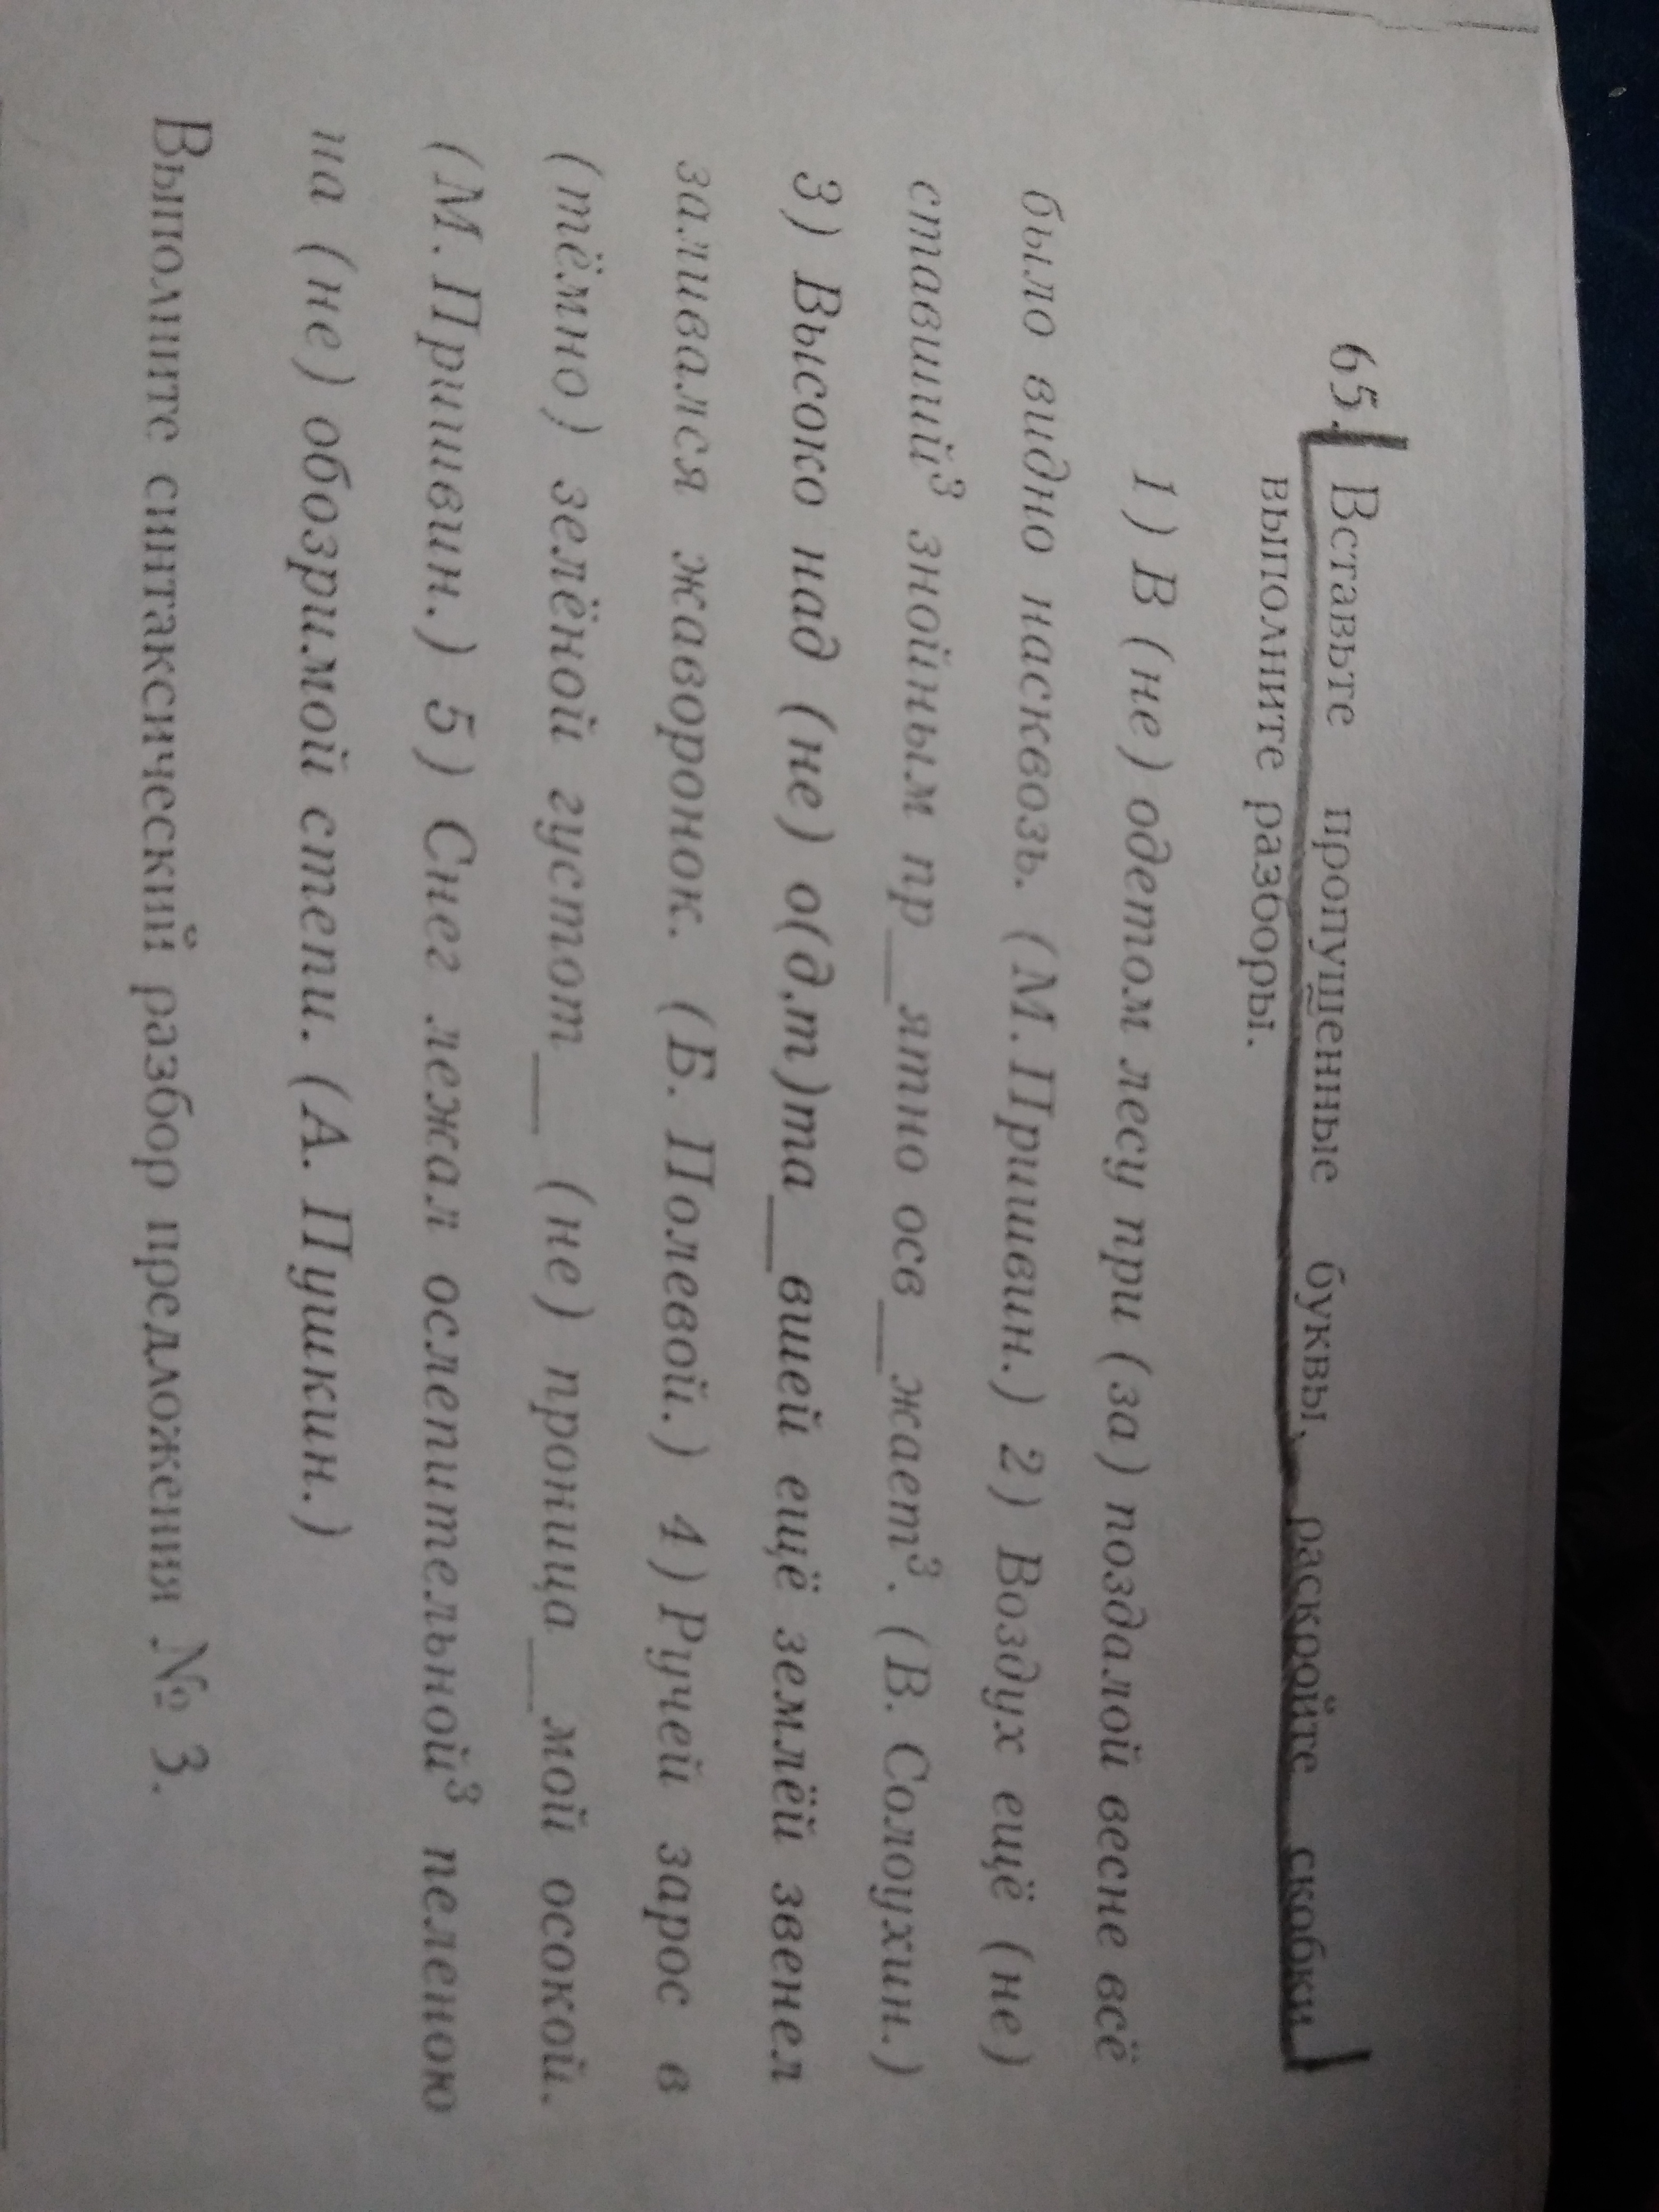 65. Вставьте пропущенные буквы, раскройте скобки,
выполните разборы.
1) В (не) одетом лесу при (за) поздалой весне всё
было видно насквозь. (М. Пришвин.) 2) Воздух ещё (не)
ставший³ знойным пр__ятно осв__жает³. (В. Солоухин.)
3) Высоко над (не) о(д,т)та__вшей ещё землёй звенел
заливался жаворонок. (Б. Полевой.) 4) Ручей зарос в
(тёмно) зелёной густот__ (не) проница__мой осокой.
(М. Пришвин.) 5) Снег лежал ослепительной³ пеленою
на (не) обозримой степи. (А. Пушкин.)
Выполните синтаксический разбор предложения № 3.